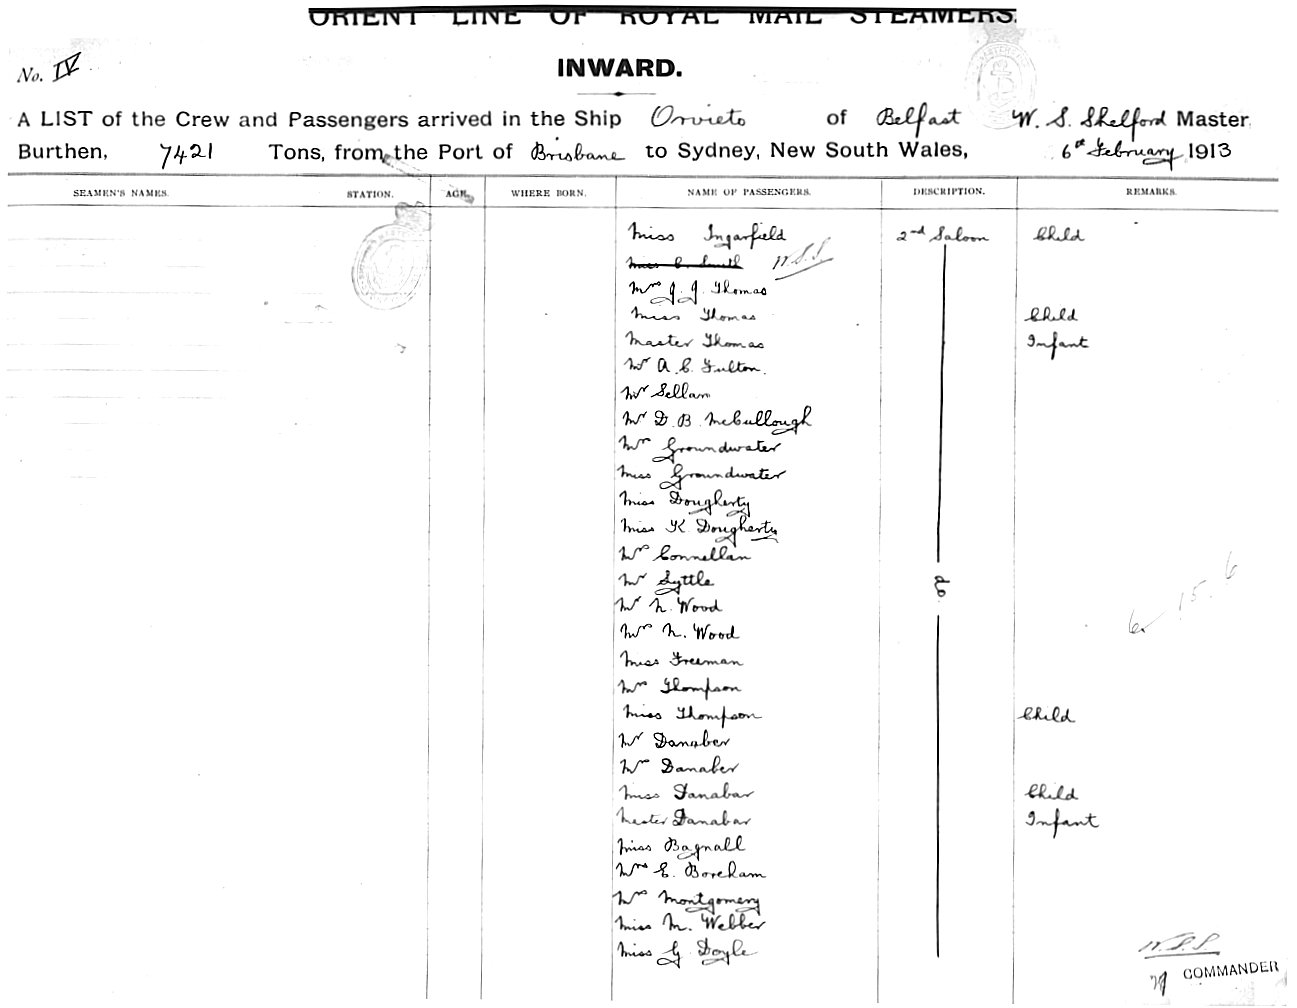 ORIENT LINE OF ROYAL MAIL STEAMERS.
No. IV
INWARD.
A LIST of the Crew and Passengers arrived in the Ship Orvieto of Belfast W. S. Shelford Master
Burthen, 7421 Tons, from the Port of Brisbane to Sydney, New South Wales, 6th February 1913
SEAMEN'S NAMES. STATION. AGE. WHERE BORN. NAME OF PASSENGERS. DESCRIPTION. REMARKS.
Miss Ingarfield 2nd Saloon Child
Miss C. Smith W.S.S.
Mrs J. J. Thomas
Miss Thomas Child
Master Thomas Infant
Mr A. C. Fulton.
Mr Sellam
Mr D. B. McCullough
Mrs Groundwater
Miss Groundwater
Miss Dougherty
Miss K Dougherty
Mrs Connellan
Mr Lyttle do.
Mr N. Wood
Mrs N. Wood
Miss Freeman
Mrs Thompson
Miss Thompson Child
Mr Danaber
Mrs Danaber
Miss Danabar Child
Master Danabar Infant
Miss Bagnall
Mrs E. Boreham
Mrs Montgomery
Miss M. Webber
Miss G Doyle
6 15.6
W.S.S.
COMMANDER